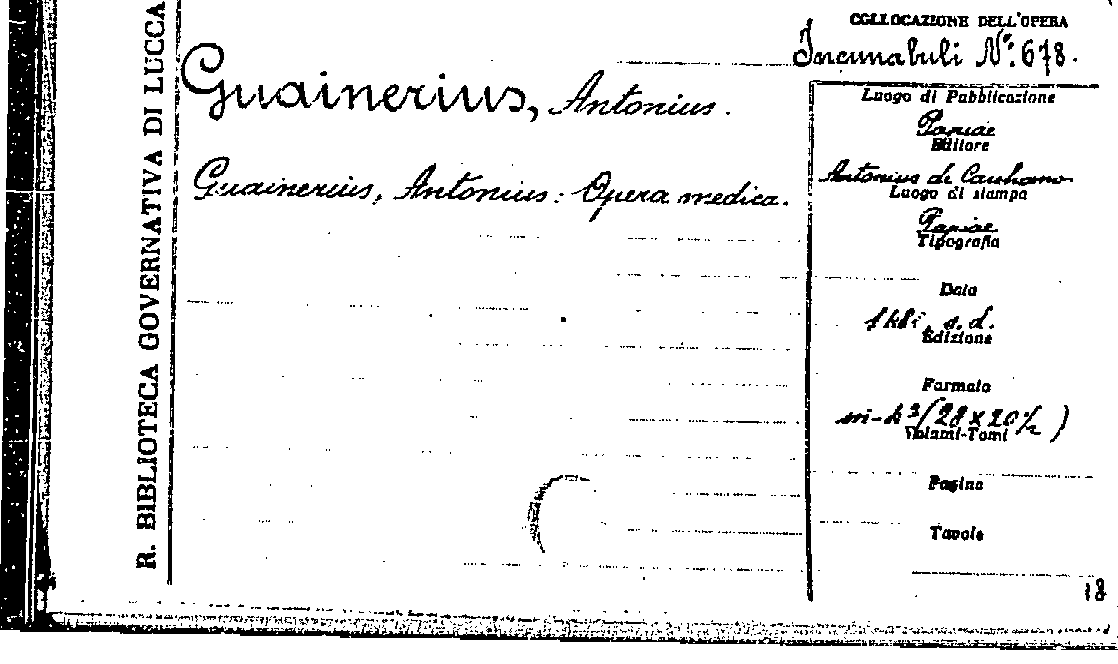 R. BIBLIOTECA GOVERNATIVA DI LUCCA
COLLOCAZIONE DELL'OPERA
Incunabuli N°: 678.
Guainerius, Antonius.
Guainerius, Antonius: Opera medica.
Luogo di Pubblicazione
Papiae
Editore
Antonius de Carchano
Luogo di stampa
Papiae
Tipografia
Data
1481, s. d.
Edizione
Formato
(28 x 20½)
Volumi-Tomi
Pagine
Tavole
18